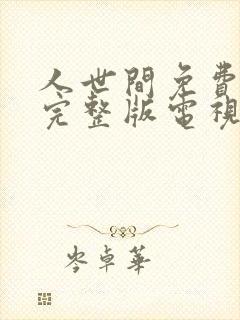 人世間免費
完整版電視
岑卓華